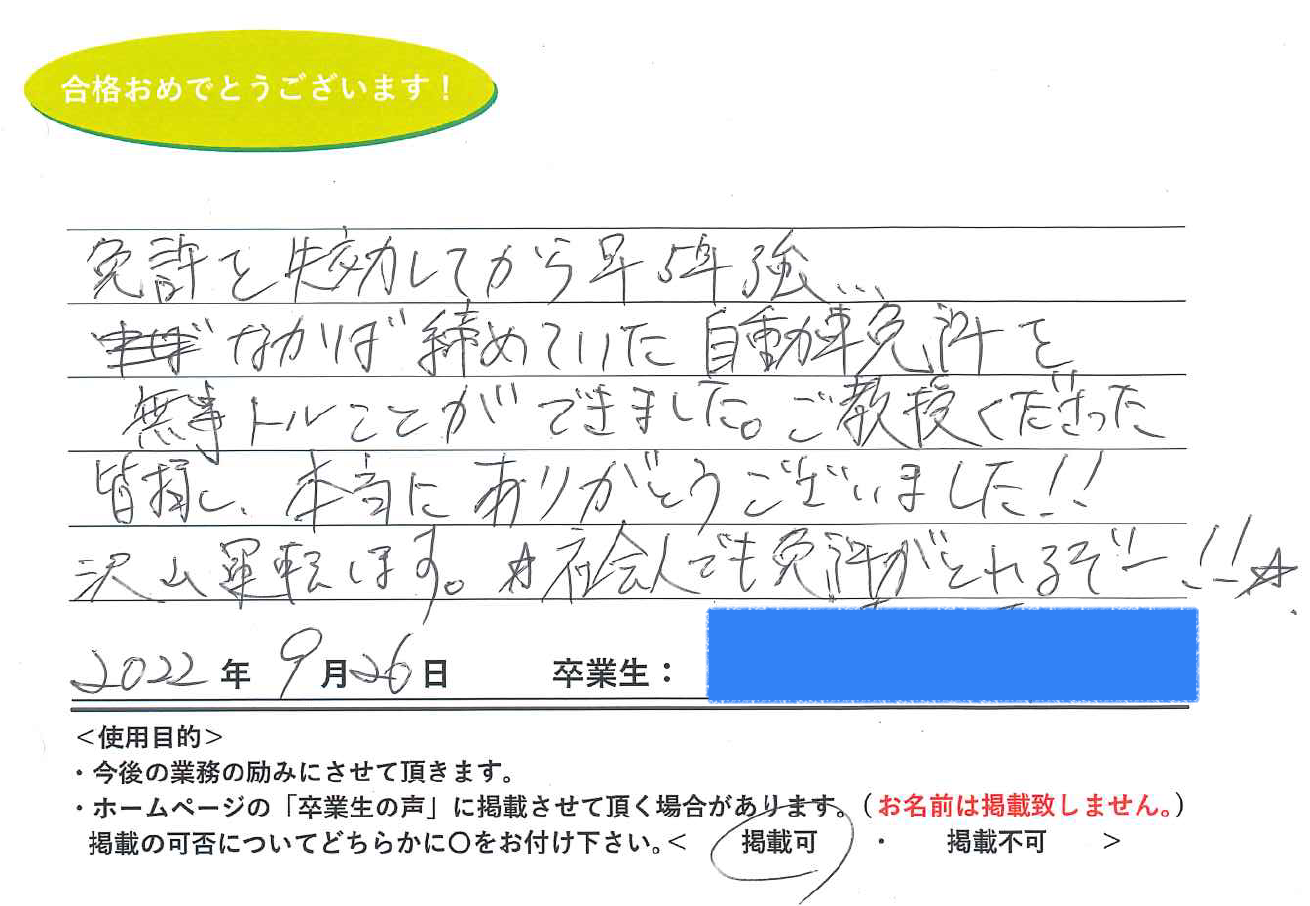 合格おめでとうございます！
免許を失効してから早5年強...
なかば締めていた自動車免許を
無事トルことができました。ご教授くださった
皆様、本当にありがとうございました!!
沢山運転します。☆社会人でも免許がとれるぞー!!☆
2022年9月26日 卒業生：
＜使用目的＞
・今後の業務の励みにさせて頂きます。
・ホームページの「卒業生の声」に掲載させて頂く場合があります。（お名前は掲載致しません。）
掲載の可否についてどちらかに〇をお付け下さい。＜ 掲載可 ・ 掲載不可 ＞